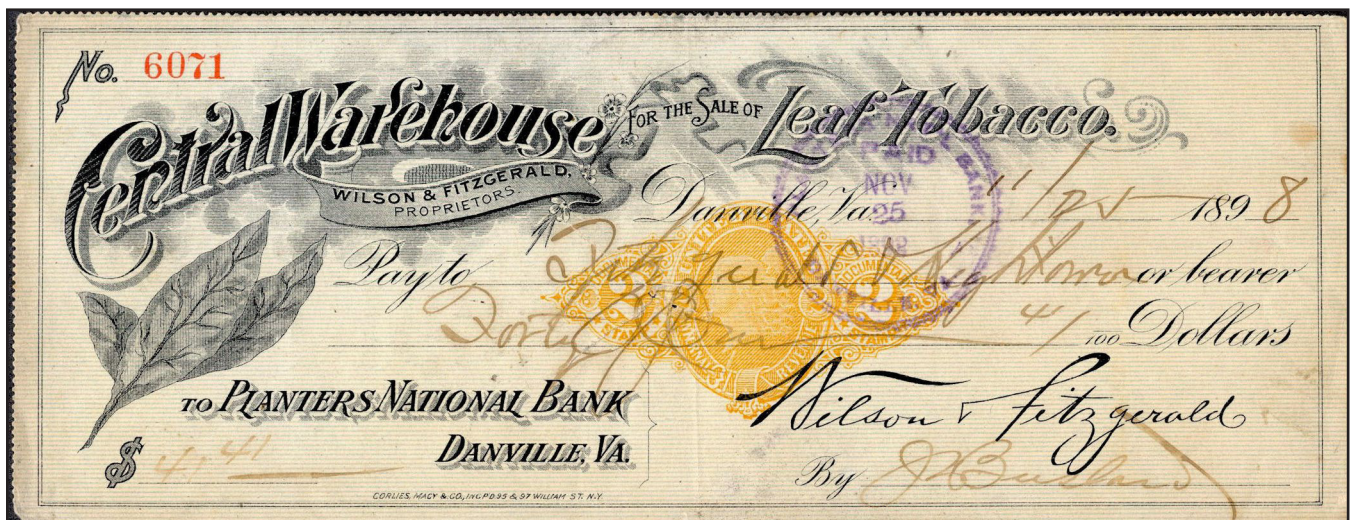 No. 6071
Central Warehouse FOR THE SALE OF Leaf Tobacco.
WILSON & FITZGERALD,
PROPRIETORS.
Danville, Va. 11/25 1898
PAID
NOV
25
1898
Pay to or bearer
Forty 41/100 Dollars
2 2
TO PLANTERS NATIONAL BANK
DANVILLE, VA.
Wilson & Fitzgerald
$ 41 41
By
CORLIES, MACY & CO., INC. P.D. 95 & 97 WILLIAM ST. N.Y.